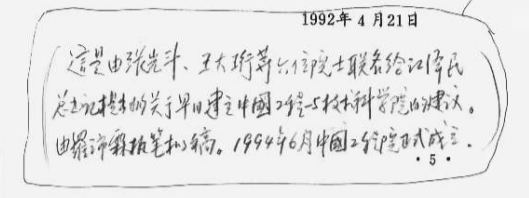 1992年4月21日
这是由张光斗、王大珩等六位院士联名给江泽民
总书记提出的关于早日建立中國工程与技术科学院的建议。
由羅沛霖执笔拟稿。1994年6月中國工程院正式成立.
·5·